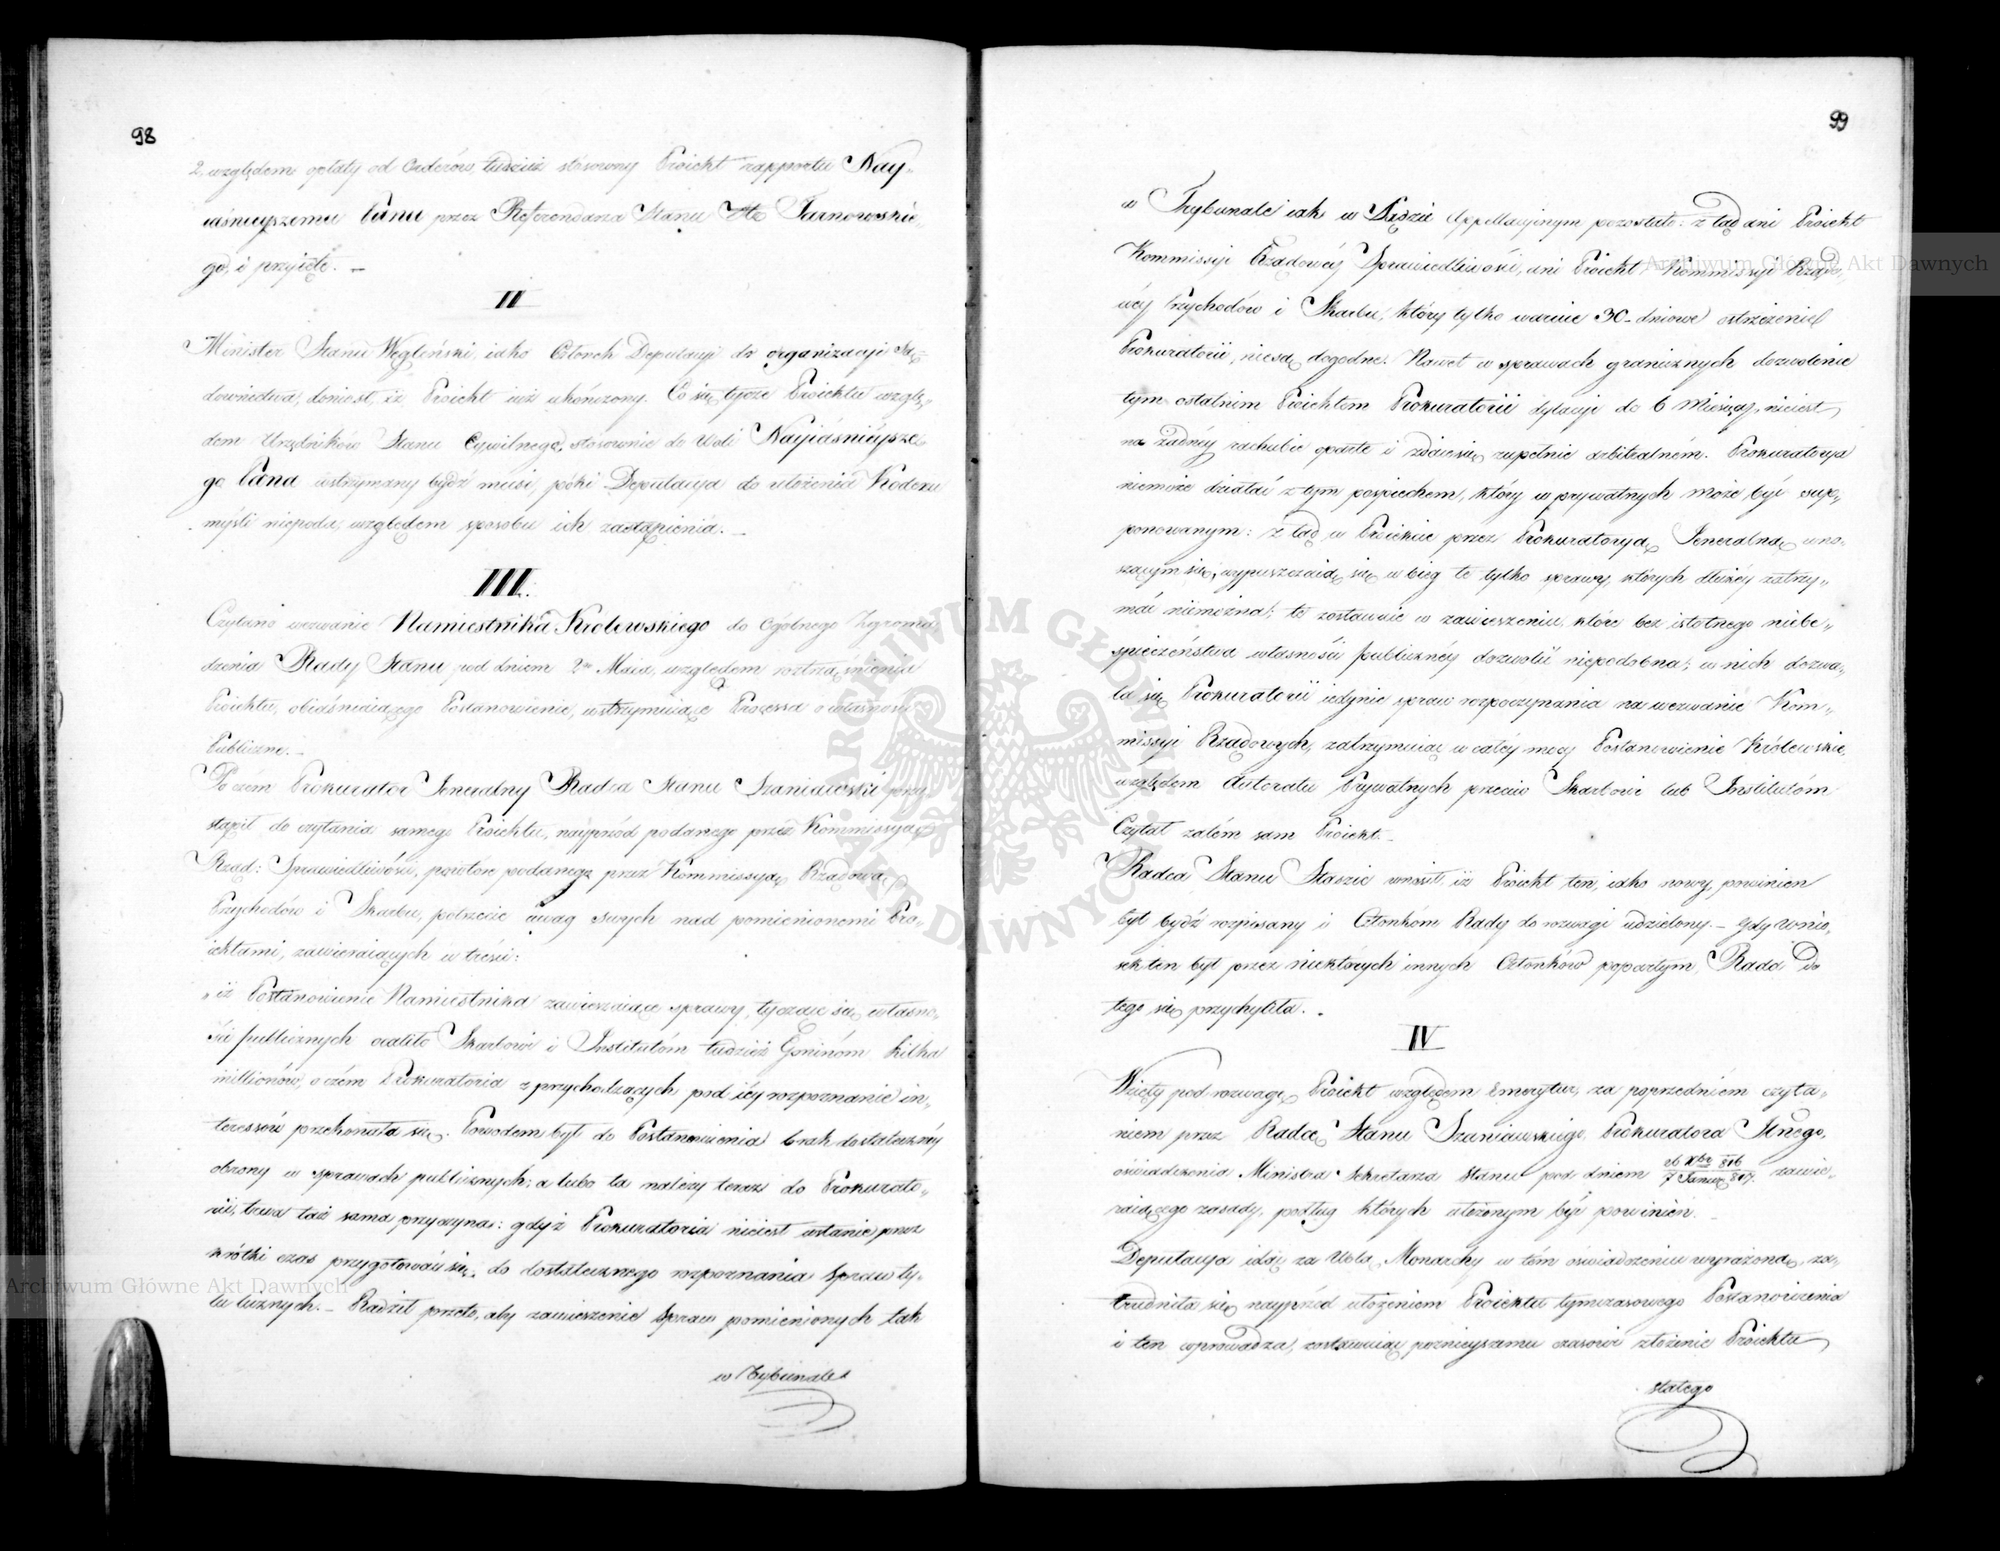 98
2. względem opłaty od Orderów, tudzież stosowny Proiekt rapportu Nay-
iaśnieyszemu Panu przez Referendarza Stanu Hr. Tarnowskie-
go, i przyięto. —
II
Minister Stanu Węgleński, iako Członek Deputacyi do organizacyi Są-
downictwa, doniosł, iż Proiekt iuż ukończony. Co się tycze Proiektu wzglę-
dem Urzędników Stanu Cywilnego, stosownie do Woli Nayiaśnieysze-
go Pana wstrzymany bydź musi, póki Deputacya do ułożenia Kodexu
myśli niepoda, względem sposobu ich zastąpienia. —
III.
Czytano wezwanie Namiestnika Królewskiego do Ogólnego Zgroma-
dzenia Rady Stanu pod dniem 2m Maia, względem roztrząśnienia
Proiektu, obiaśniaiącego Postanowienie, wstrzymuiące Processa o własności
Publiczne. —
Po czém Prokurator Jeneralny Radca Stanu Szaniawski przy-
stąpił do czytania samego Proiektu, nayprzód podanego przez Kommissyą
Rząd: Sprawiedliwości, powtóre podanego przez Kommissyą Rządową
Przychodów i Skarbu, potrzecie uwag swych nad pomienionemi Pro-
iektami, zawieraiących w treści:
„iż Postanowienie Namiestnika zawieszaiące sprawy, tyczące się własno-
ści publicznych ocaliło Skarbowi i Institutóm tudzież Gminóm kilka
millionów, o czém Prokuratoria z przychodzących pod iéy rozpoznanie in-
teressów przekonała się. Powodem był do Postanowienia brak dostateczney
obrony w sprawach publicznych; a lubo ta należy teraz do Prokurato-
rii, trwa taż sama przyczyna: gdyż Prokuratoria nieiest wstanie przez
krótki czas przygotować się, do dostatecznego rozpoznania Spraw ty-
lu licznych. — Radził przeto, aby zawieszenie Spraw pomienionych tak
w Trybunale
99
w Trybunale iak w Sądzie Appellacyinym pozostało: z tąd ani Proiekt
Kommissyi Rządowéy Sprawiedliwości, ani Proiekt Kommissyi Rządo-
wéy Przychodów i Skarbu, który tylko waruie 30-dniowe ostrzeżenie
Prokuratorii, niesą dogodne. Nawet w sprawach granicznych dozwolenie
tym ostatnim Proiektem Prokuratorii dylacyi do 6 Miesięcy, nieiest
na żadnéy rachubie oparte i zdaie się zupełnie arbitralném. Prokuratorya
niemoże działać z tym pospiechem, który w prywatnych może być sup-
ponowanym: z tąd w Proiekcie przez Prokuratoryą Jeneralną wno-
szącym się, wypuszczaią się w bieg te tylko sprawy, których dłużéy zatrzy-
mać niemożna; te zostawuie w zawieszeniu, które bez istotnego niebe-
spieczeństwa własności publicznéy dozwolić niepodobna; w nich dozwa-
la się Prokuratorii iedynie spraw rozpoczynania na wezwanie Kom-
missyi Rządowych, zatrzymuiąc w całéy mocy Postanowienie Królewskie
względem Autoratu Prywatnych przeciw Skarbowi lub Institutóm
Czytał zatém sam Proiekt. —
Radca Stanu Staszic wnosił, iż Proiekt ten, iako nowy, powinien
był bydź rozpisany i Członkóm Rady do rozwagi udzielony. — Gdy wnio-
sek ten był przez niektórych innych Członków popartym, Rada do
tego się przychyliła. —
IV
Wzięty pod rozwagę Proiekt względem Emerytur, za poprzedniem czyta-
niem przez Radcę Stanu Szaniawskiego, Prokuratora Jlnego,
oświadczenia Ministra Sekretarza Stanu pod dniem 26 Xbr 816 / 7 Januar 817. zawie-
raiącego zasady, podług których ułożonym być powinien. —
Deputacya idąc za Wolą Monarchy w tém oświadczeniu wyrażoną, za-
trudniła się nayprzód ułożeniem Proiektu tymczasowego Postanowienia
i ten wprowadza, zostawuiąc poznieyszemu czasowi złożenie Proiektu
stałego
Archiwum Główne Akt Dawnych
Archiwum Główne Akt Dawnych
ARCHIWUM GŁÓWNE AKT DAWNYCH